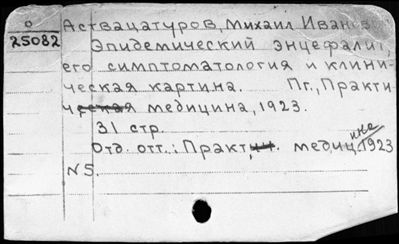 О
25082
Аствацатуров, Михаил Иванов
Эпидемический энцефалит,
его симптоматология и клини-
ческая картина. Пг., Практи-
ческая медицина, 1923.
31 стр.
Отд. отт.: Практ. медицине 1923
N5.